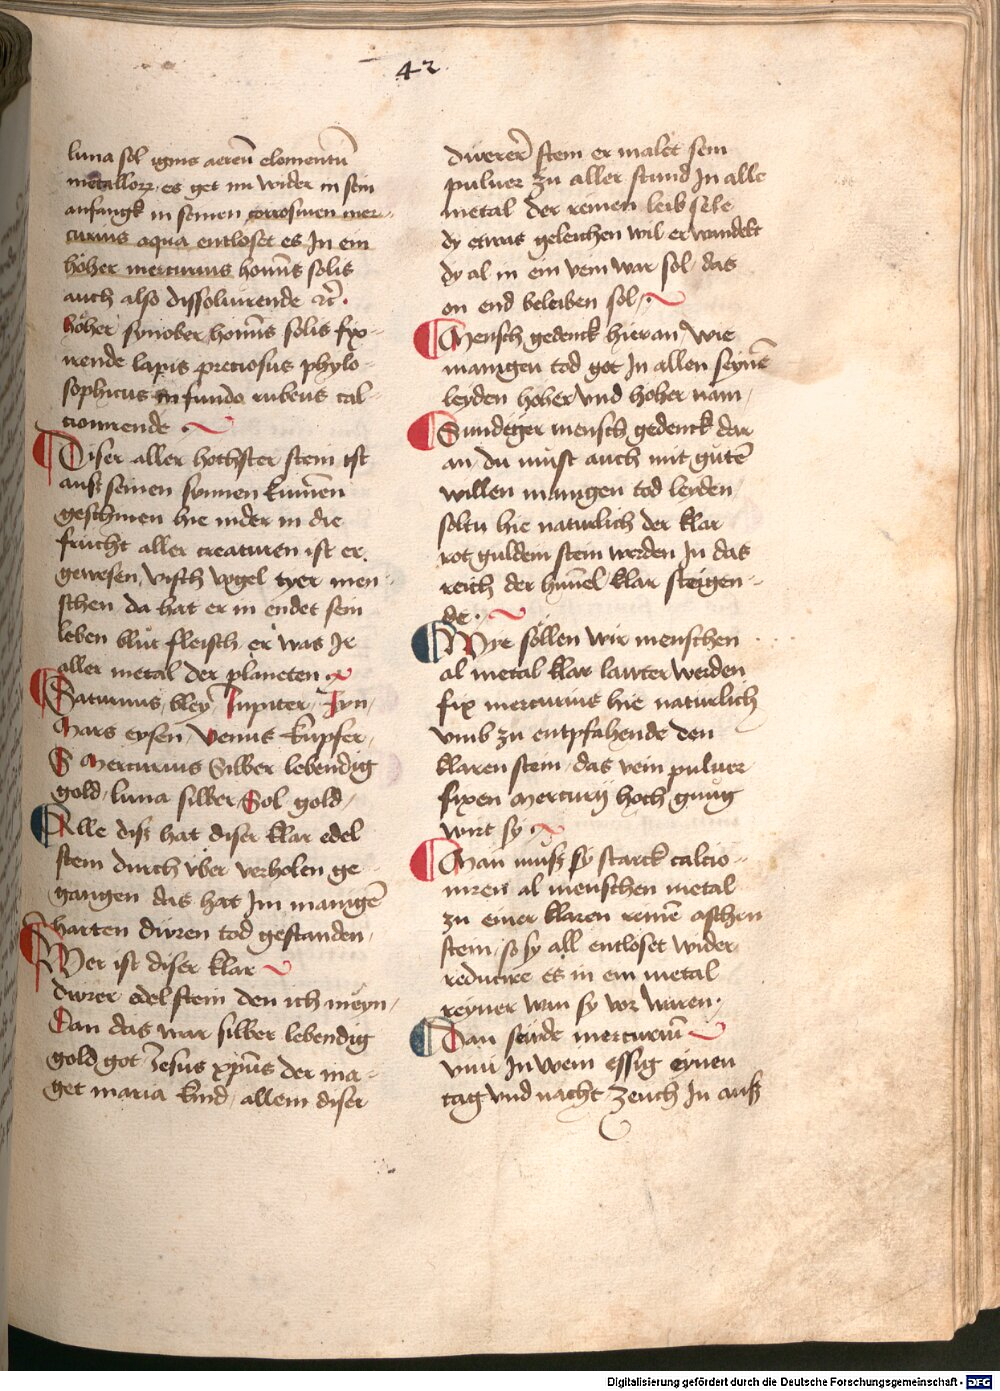 42
luna sol ignis aereū elementū
metallorꝝ es get im wider in sein
anfangk in seinen corrosiuen mer-
curius aqua entloset es In ein
hoher mercurius homīs solis
auch also dissoluirende ꝛc̄.
hoher synober homīs solis fyx-
irende lapis preciosus phylo-
sophicus in fundo rubeus cal-
cionirende
Diser aller hochster stein ist
auß seinen synnen kumen
geschinen hie nider in die
frucht aller creaturen ist er
gewesen, visch vogel tyer men-
schen da hat er in endet sein
leben blut fleisch er was Ir
aller metal der planeten
Saturnus, bley, Jupiter, Zyn,
Mars eysen, Venus kupfer,
Mercurius Silber lebendig
gold, luna silber, Sol gold,
Alle diß hat diser klar edel
stein durch vber verholen ge-
gangen das hat Im manigē
harten divren tod gestanden,
Wer ist diser klar
divrer edel stein den ich meyn,
Dan das war silber lebendig
gold got Jesus xp̄us der ma-
get maria kind, allein diser
divererē stein er malet sein
puluer zu aller stund In alle
metal der reinen leib sele
dy etwas geleichen wil er wandelt
dy al in ein vein war sol, das
on end beleiben sol,
Mensch gedenck hieran, wie
manigen tod got In allen seynē
leyden hoher vnd hoher nam,
Sundiger mensch gedenck dar
an, du must auch mit gutē
willen manigen tod leyden
soltu hie naturlich der klar
rot guldein stein werden In das
reich der himel klar steigen-
de.
Wye söllen wir menschen
al metal klar lauter werden
fix mercurius hie naturlich
vmb zu entpfahende den
klaren stein, das vein puluer
fixen Mercurij hoch gnug
wirt sy
Man muß sy starck calcio-
niren al menschen metal
zu einer klaren reinē aschen
stein, so sy all entloset wider
reducire es in ein metal
reyner wan sy vor waren,
Dan seude mercuriū
vini In wein essig eynen
tag vnd nacht, zeuch In auß
Digitalisierung gefördert durch die Deutsche Forschungsgemeinschaft - DFG